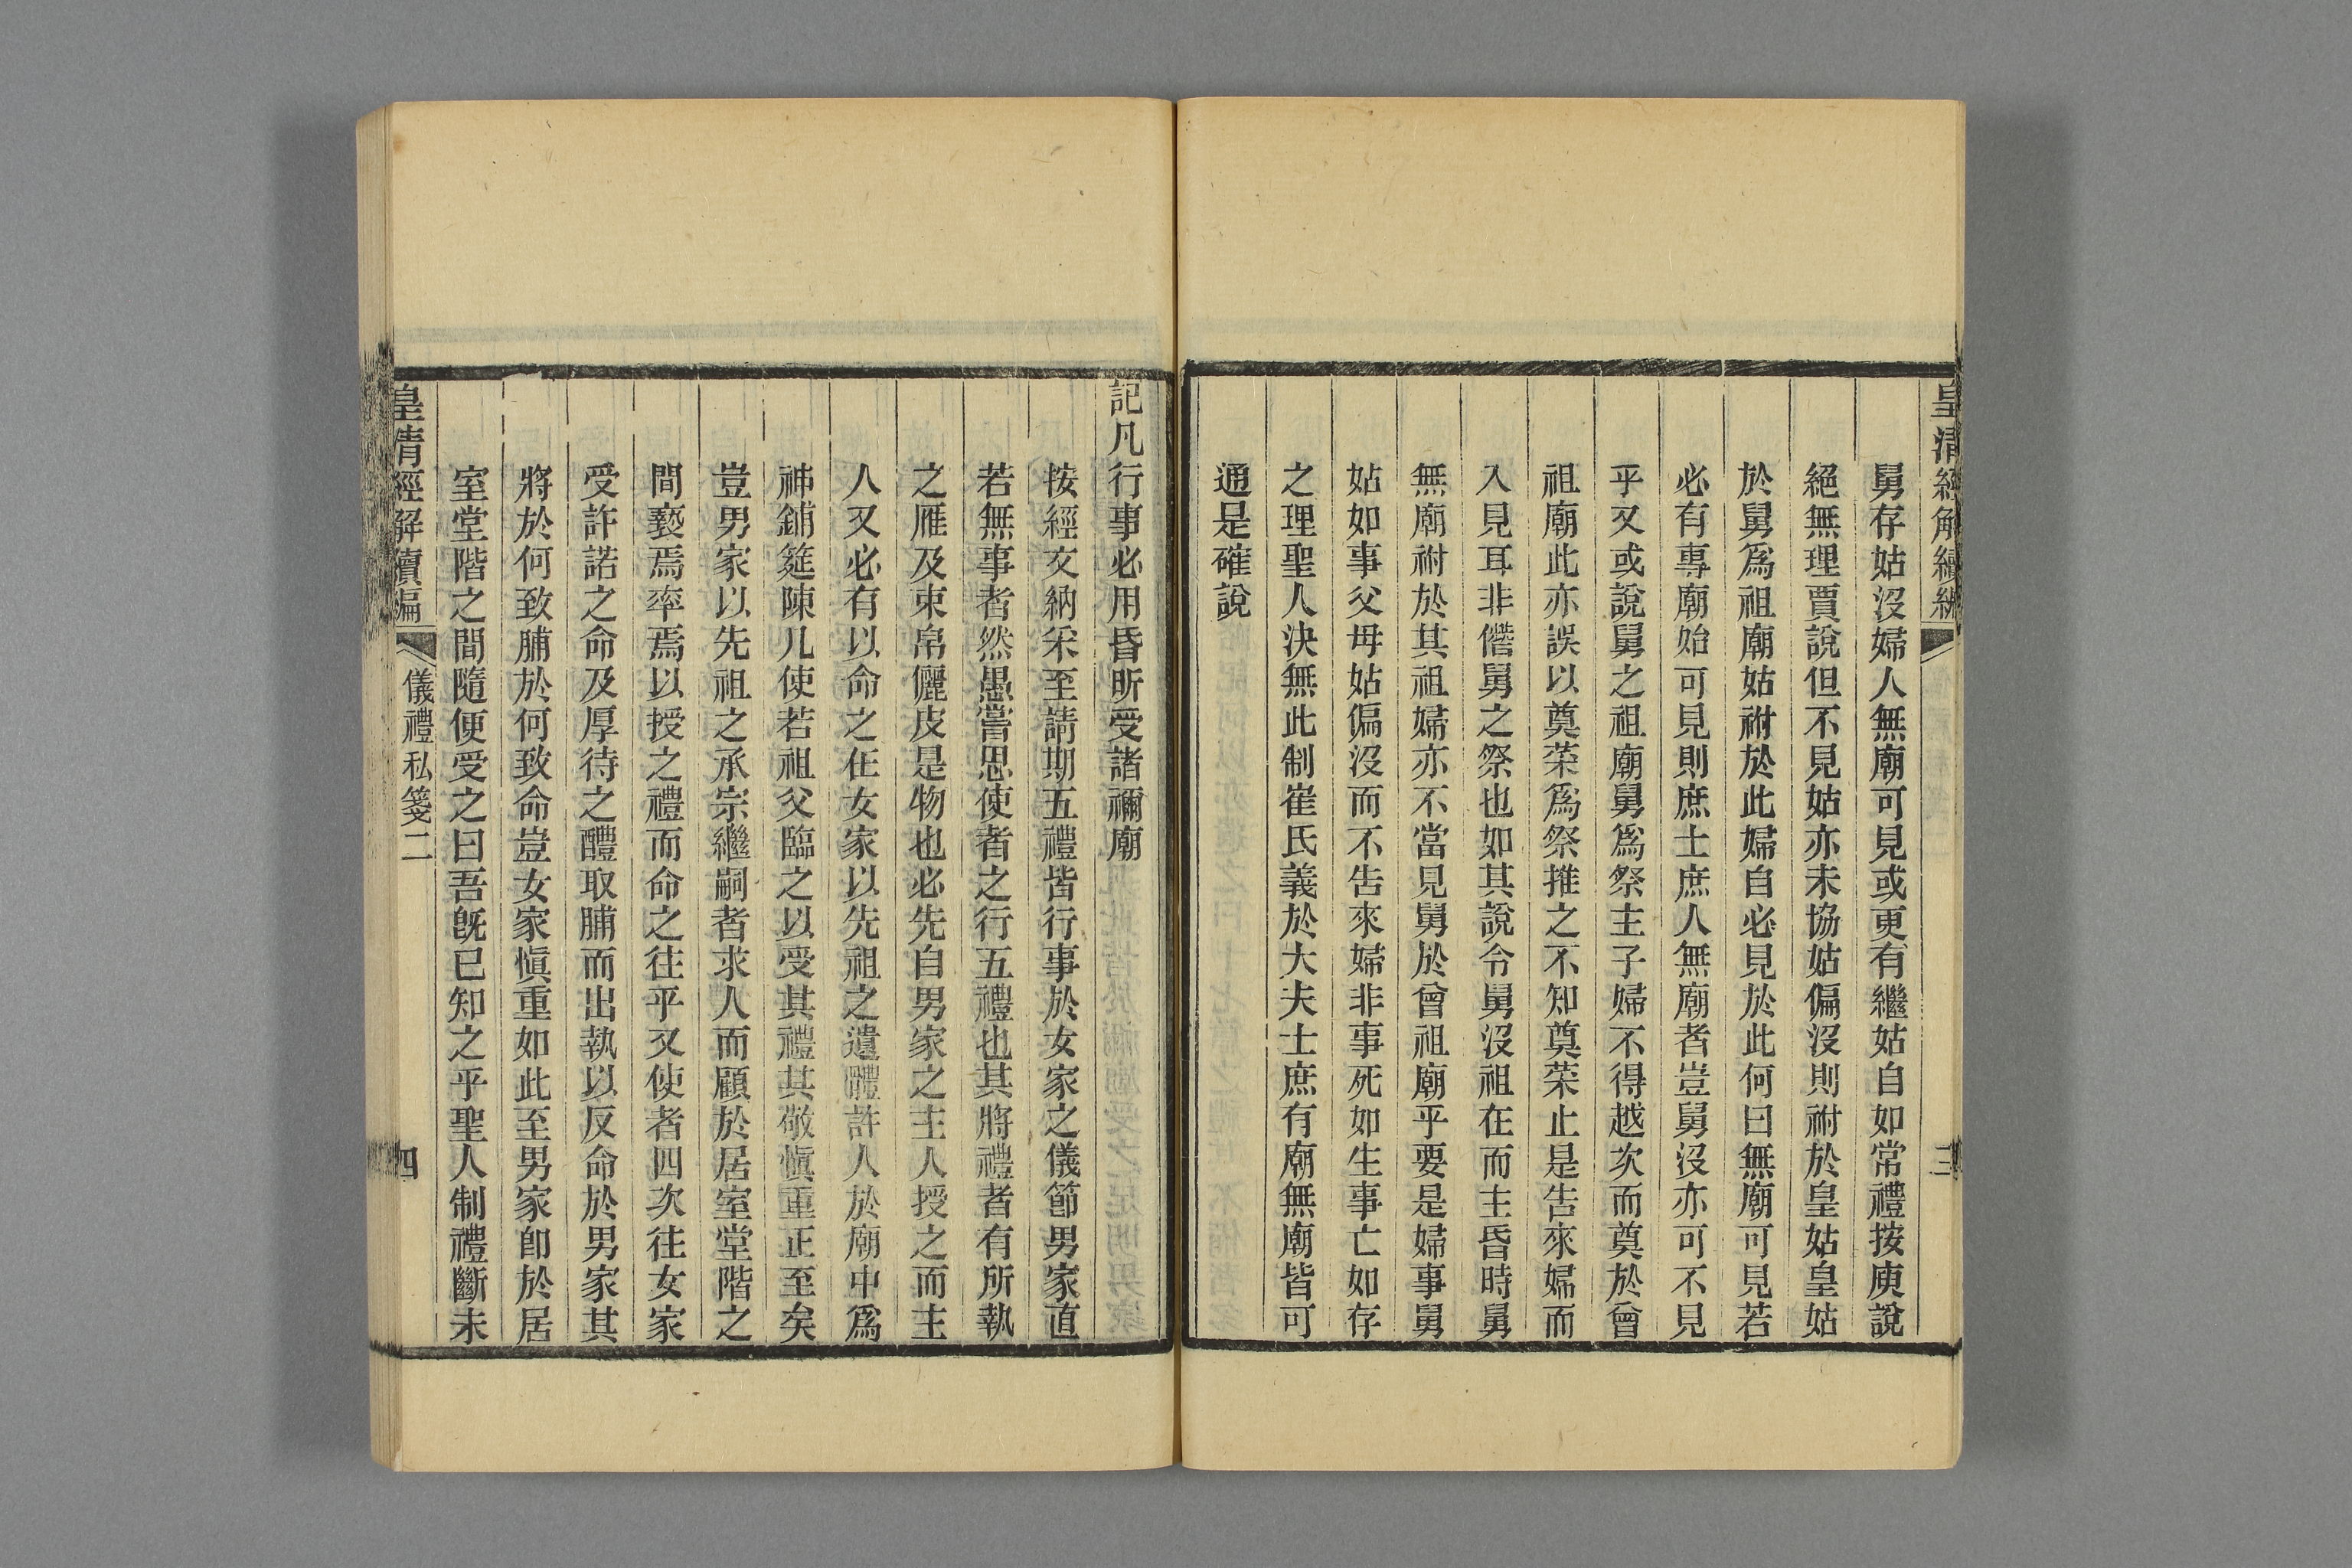 皇清經解續編
三
舅存姑沒婦人無廟可見或更有繼姑自如常禮按庾說
絕無理賈說但不見姑亦未協姑偏沒則祔於皇姑皇姑
於舅爲祖廟姑祔於此婦自必見於此何曰無廟可見若
必有專廟始可見則庶士庶人無廟者豈舅沒亦可不見
乎又或說舅之祖廟舅爲祭主子婦不得越次而奠於曾
祖廟此亦誤以奠菜爲祭推之不知奠菜止是告來婦而
入見耳非僭舅之祭也如其說令舅沒祖在而主昏時舅
無廟祔於其祖婦亦不當見舅於曾祖廟乎要是婦事舅
姑如事父母姑偏沒而不告來婦非事死如生事亡如存
之理聖人決無此制崔氏義於大夫士庶有廟無廟皆可
通是確說
記凡行事必用昏昕受諸禰廟
按經文納采至請期五禮皆行事於女家之儀節男家直
若無事者然愚嘗思使者之行五禮也其將禮者有所執
之雁及束帛儷皮是物也必先自男家之主人授之而主
人又必有以命之在女家以先祖之遺體許人於廟中爲
神鋪筵陳几使若祖父臨之以受其禮其敬慎重正至矣
豈男家以先祖之承宗繼嗣者求人而顧於居室堂階之
間褻焉率焉以授之禮而命之往乎又使者四次往女家
受許諾之命及厚待之醴取脯而出執以反命於男家其
將於何致脯於何致命豈女家慎重如此至男家卽於居
室堂階之間隨便受之曰吾旣已知之乎聖人制禮斷未
皇清經解續編
儀禮私箋二
四